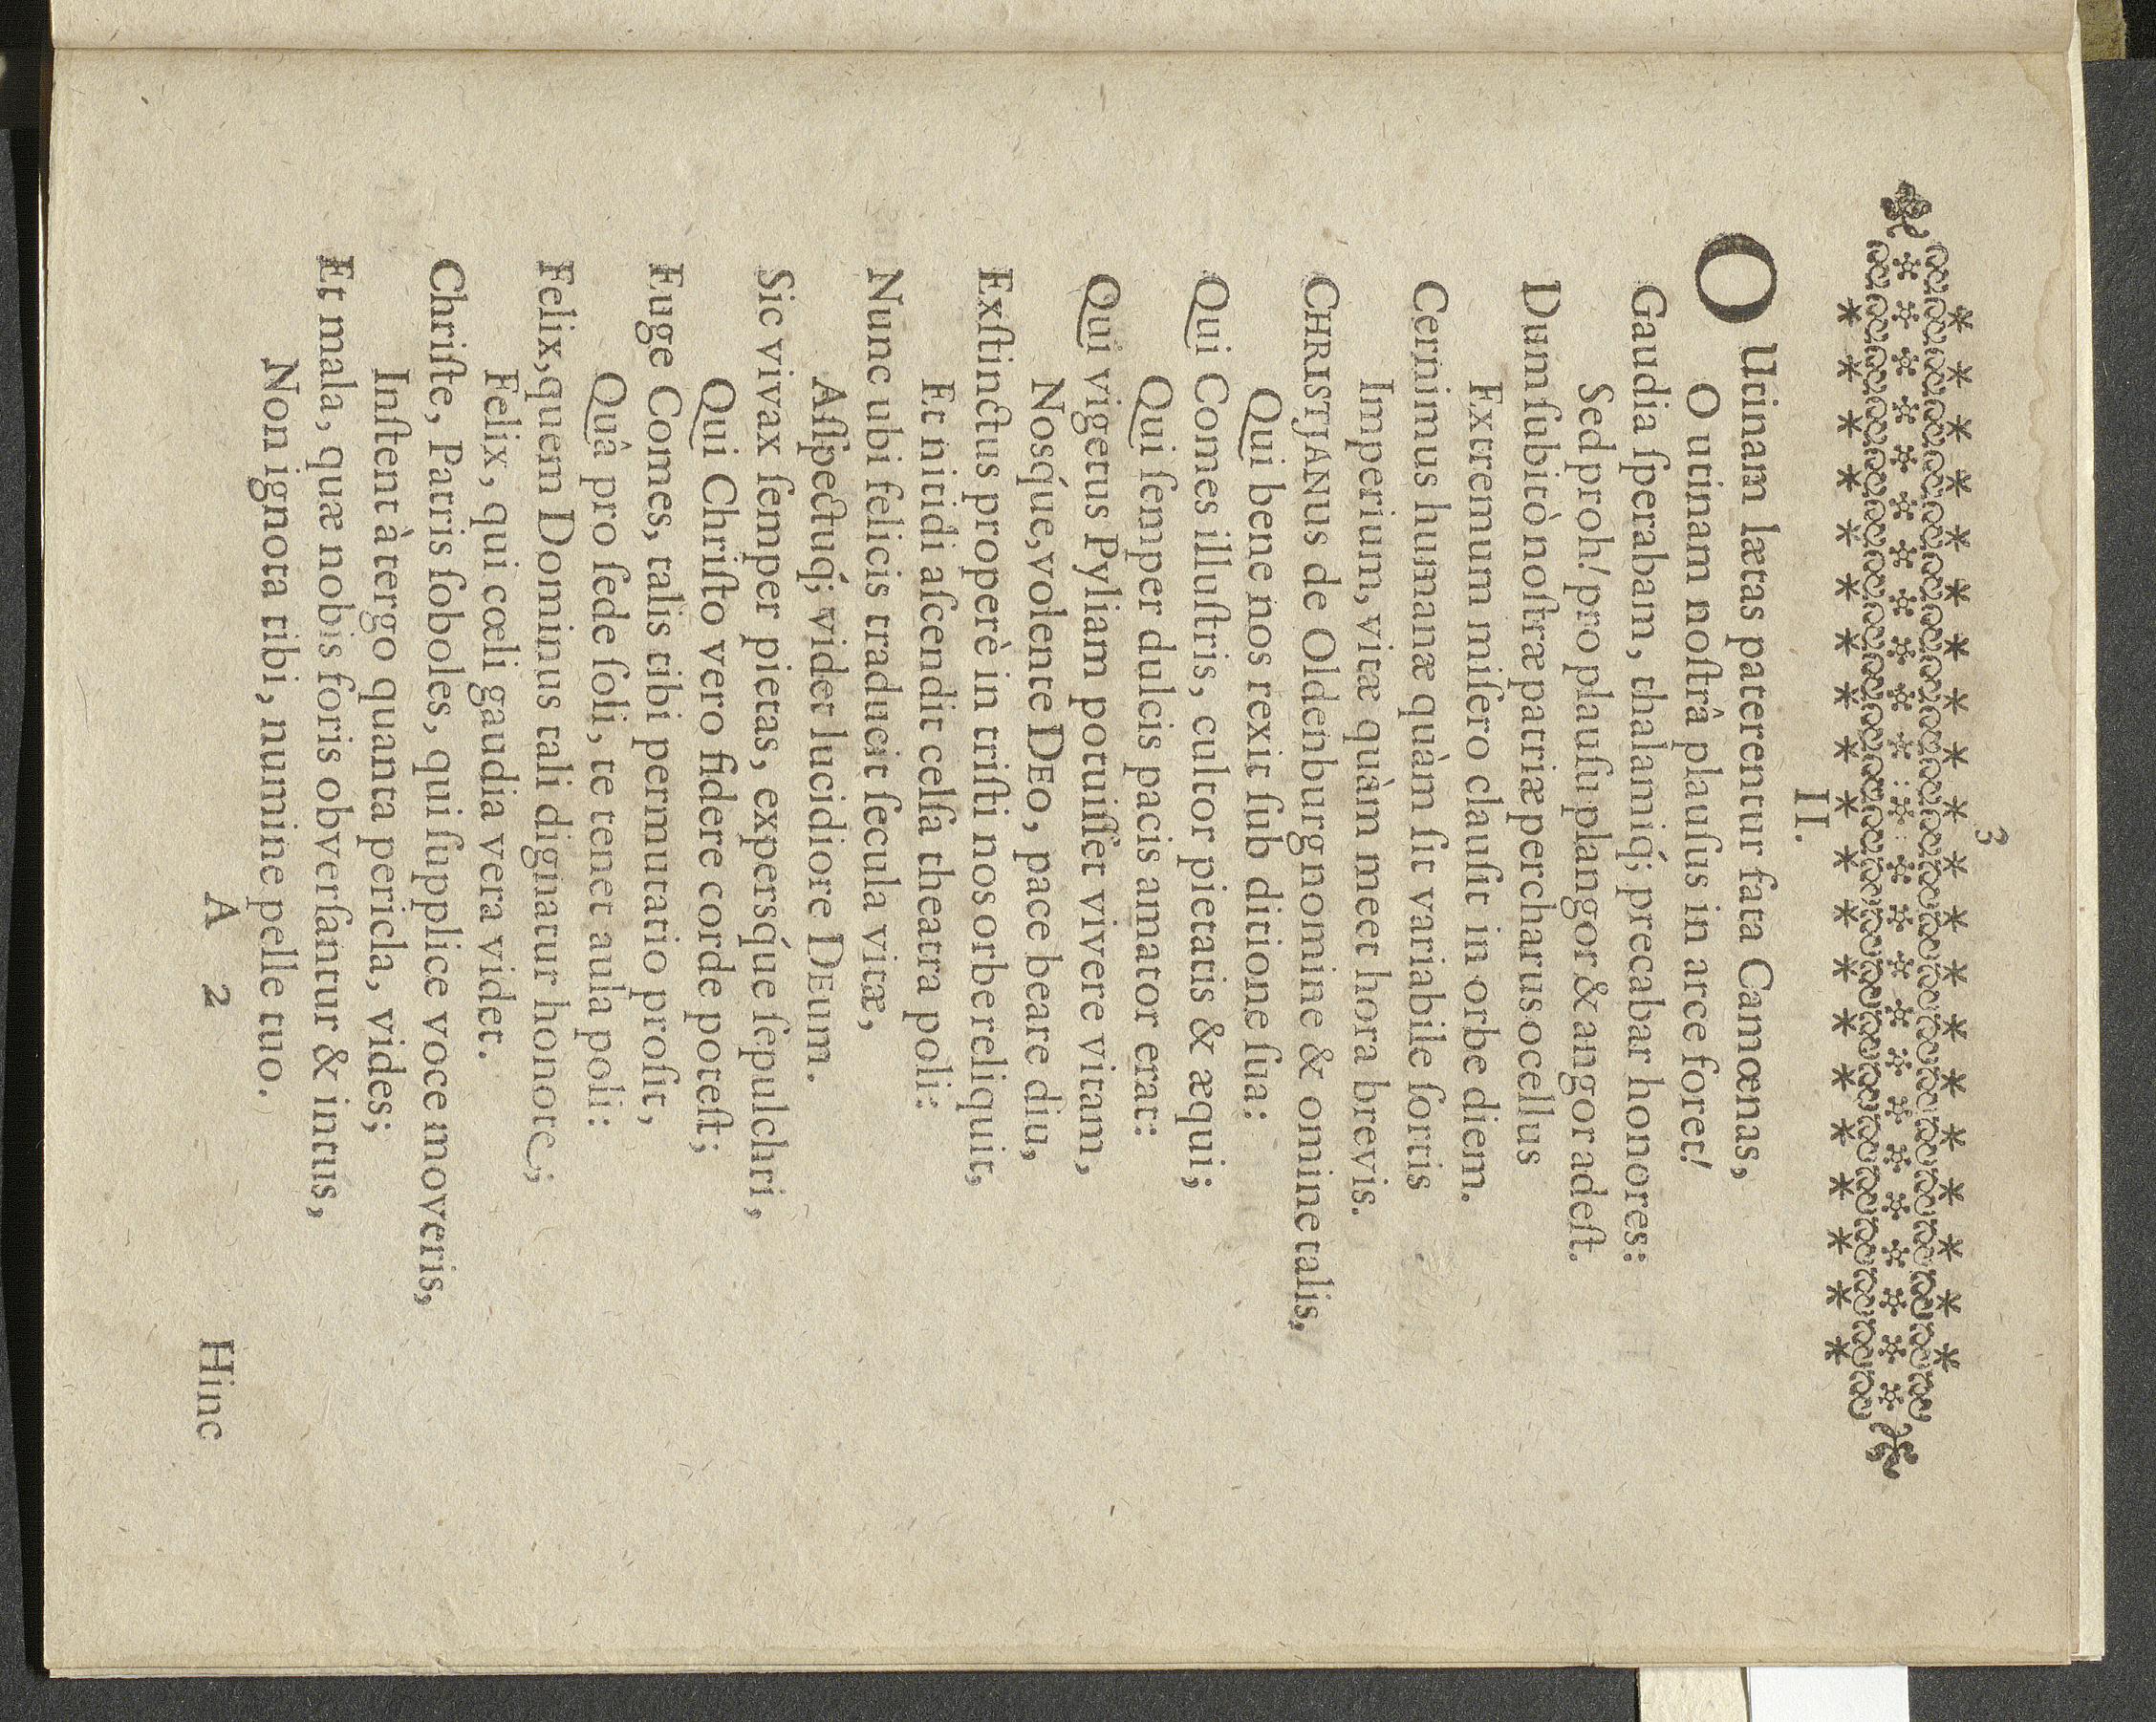 3
II.
O Utinam lætas paterentur fata Camœnas,
O utinam noſtrâ plauſus in arce foret!
Gaudia ſperabam, thalamiq́; precabar honores:
Sed proh! pro plauſu plangor & angor adeſt.
Dum ſubitò noſtræ patriæ percharus ocellus
Extremum miſero clauſit in orbe diem.
Cernimus humanæ quàm ſit variabile ſortis
Imperium, vitæ quàm meet hora brevis.
CHRISTJANUS de Oldenburg nomine & omine talis,
Qui bene nos rexit ſub ditione ſua:
Qui Comes illuſtris, cultor pietatis & æqui;
Qui ſemper dulcis pacis amator erat:
Qui vigetus Pyliam potuiſſet vivere vitam,
Nosq́ue, volente DEO, pace beare diu,
Exſtinctus properè in triſti nos orbe reliquit,
Et nitidi aſcendit celſa theatra poli:
Nunc ubi felicis traducit ſecula vitæ,
Aſſpectuq́; videt lucidiore DEum.
Sic vivax ſemper pietas, expersq́ue ſepulchri,
Qui Chriſto vero fidere corde poteſt;
Euge Comes, talis tibi permutatio proſit,
Quâ pro ſede ſoli, te tenet aula poli:
Felix, quem Dominus tali dignatur honore;
Felix, qui cœli gaudia vera videt.
Chriſte, Patris ſoboles, qui ſupplice voce moveris,
Inſtent à tergo quanta pericla, vides;
Et mala, quæ nobis foris obverſantur & intus,
Non ignota tibi, numine pelle tuo.
A 2
Hinc